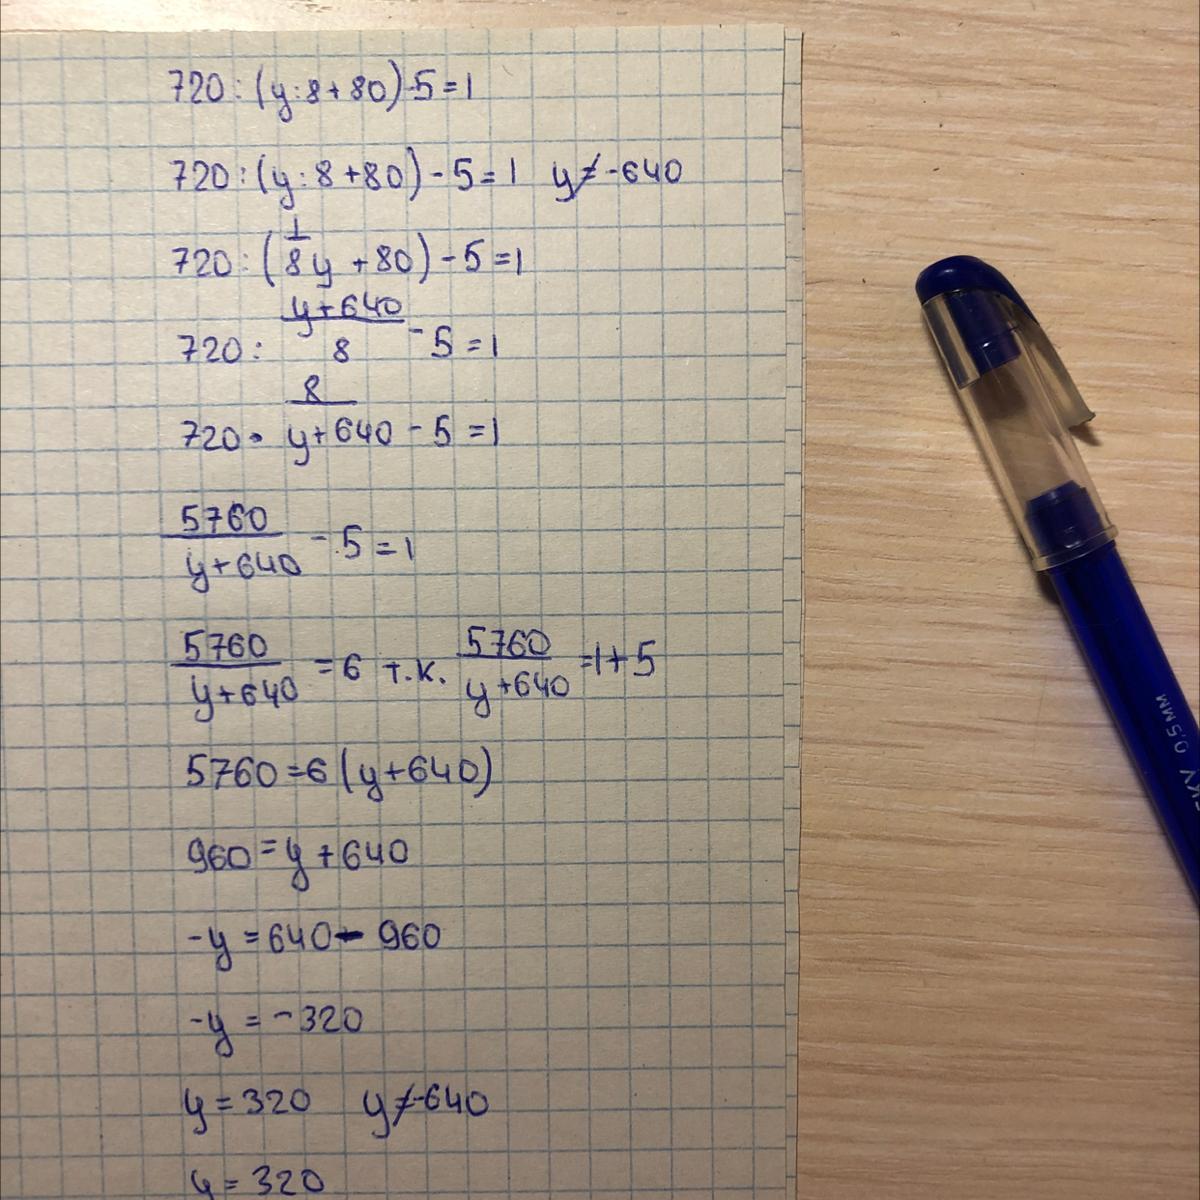 720:(y:8+80)-5=1
720:(y:8+80)-5=1 y≠-640
720:(1/8y+80)-5=1
720: (y+640)/8 -5=1
720• 8/(y+640) -5=1
5760/(y+640) -5=1
5760/(y+640) =6 т.к. 5760/(y+640) =1+5
5760=6(y+640)
960=y+640
-y=640-960
-y=-320
y=320 y≠-640
y=320
0,5MM